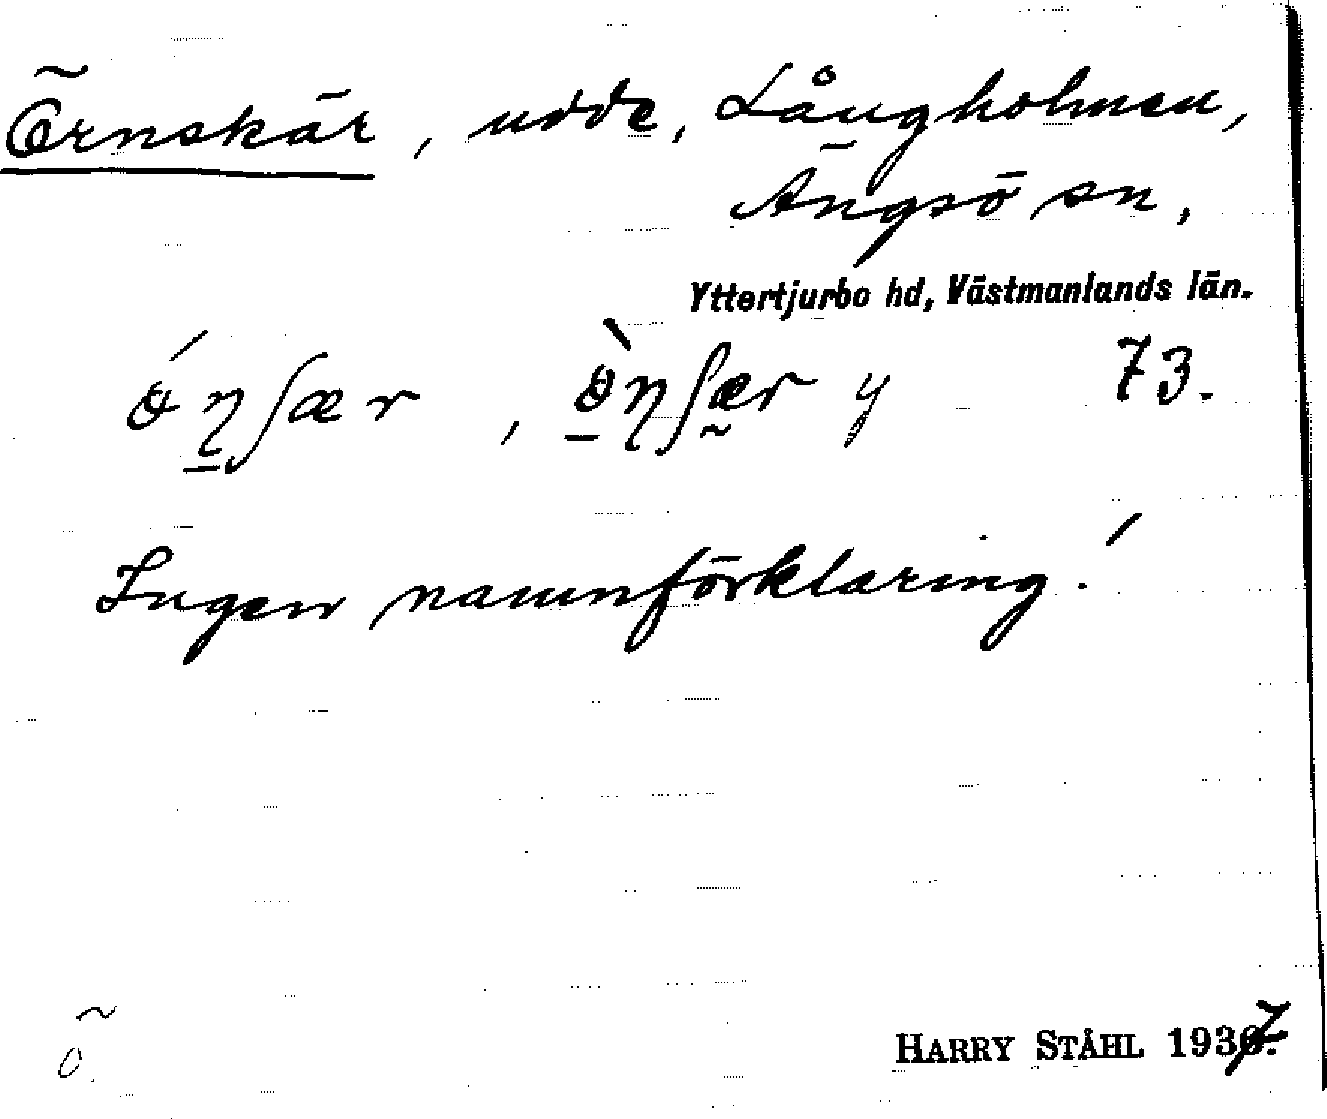 Örnskär, udde, Långholmen,
Ängsö sn,
Yttertjurbo hd, Västmanlands län.
73.
Ingen namnförklaring!
ö
HARRY STÅHL 1937.